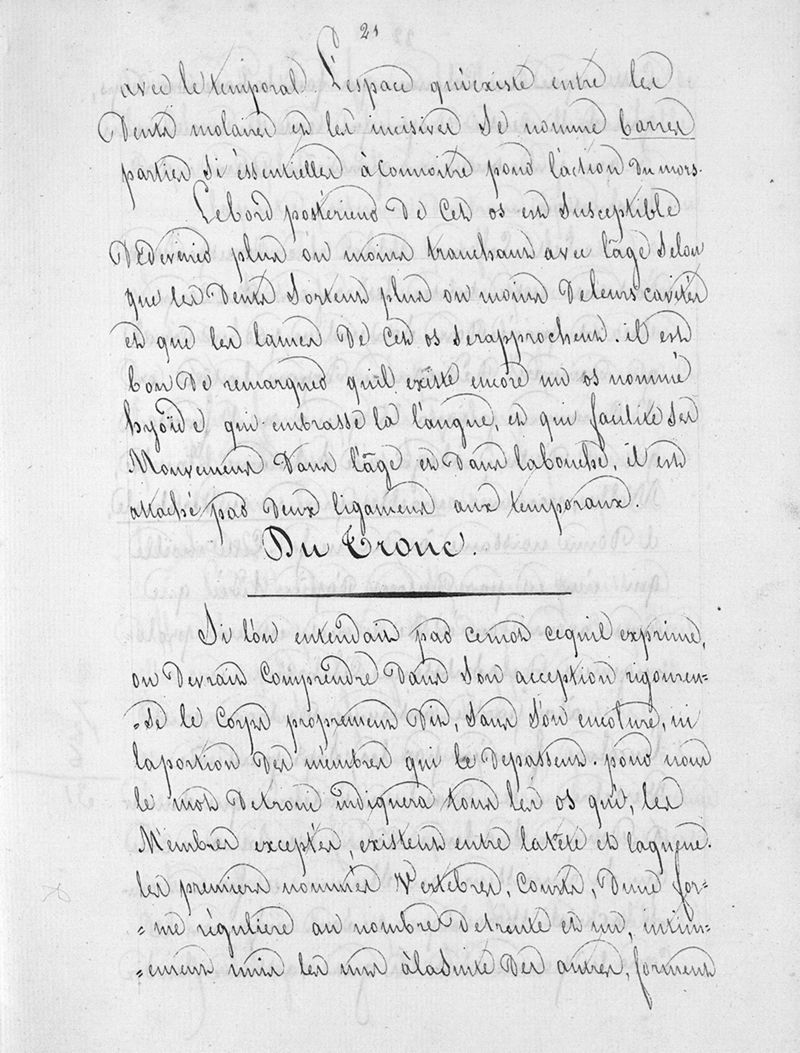 21
avec le temporal. L'espace qui existe entre les
Dents molaires et les incisives se nomme barres
parties si éssentielles à connoitre pour l'action du mors.
Le bord postérieur de cet os est susceptible
De devenir plus ou moins tranchant avec l'âge selon
que les Dents sortent plus ou moins de leurs cavités
et que les lames de cet os se rapprochent. il est
bon De remarquer qu'il existe encore un os nommé
hyoïde qui embrasse la langue, et qui facilite ses
Mouvemens dans l'âge et dans la bouche, il est
attaché par deux ligamens aux temporaux.
Du Tronc.
Si l'on entendait par ce mot ce qu'il exprime,
on devrait comprendre dans son acception rigoureu=
=se le corps proprement dit, sans son encolure, ni
la portion des membres qui le depassent. pour nous
le mot de tronc indiquera tous les os qui, les
Membres exceptés, existent entre la tête et la queue.
les premiers nommés Vertèbres, courts, d'une for=
=me régulière au nombre de trente et un, intim=
=ement unis les uns à la suite des autres, forment